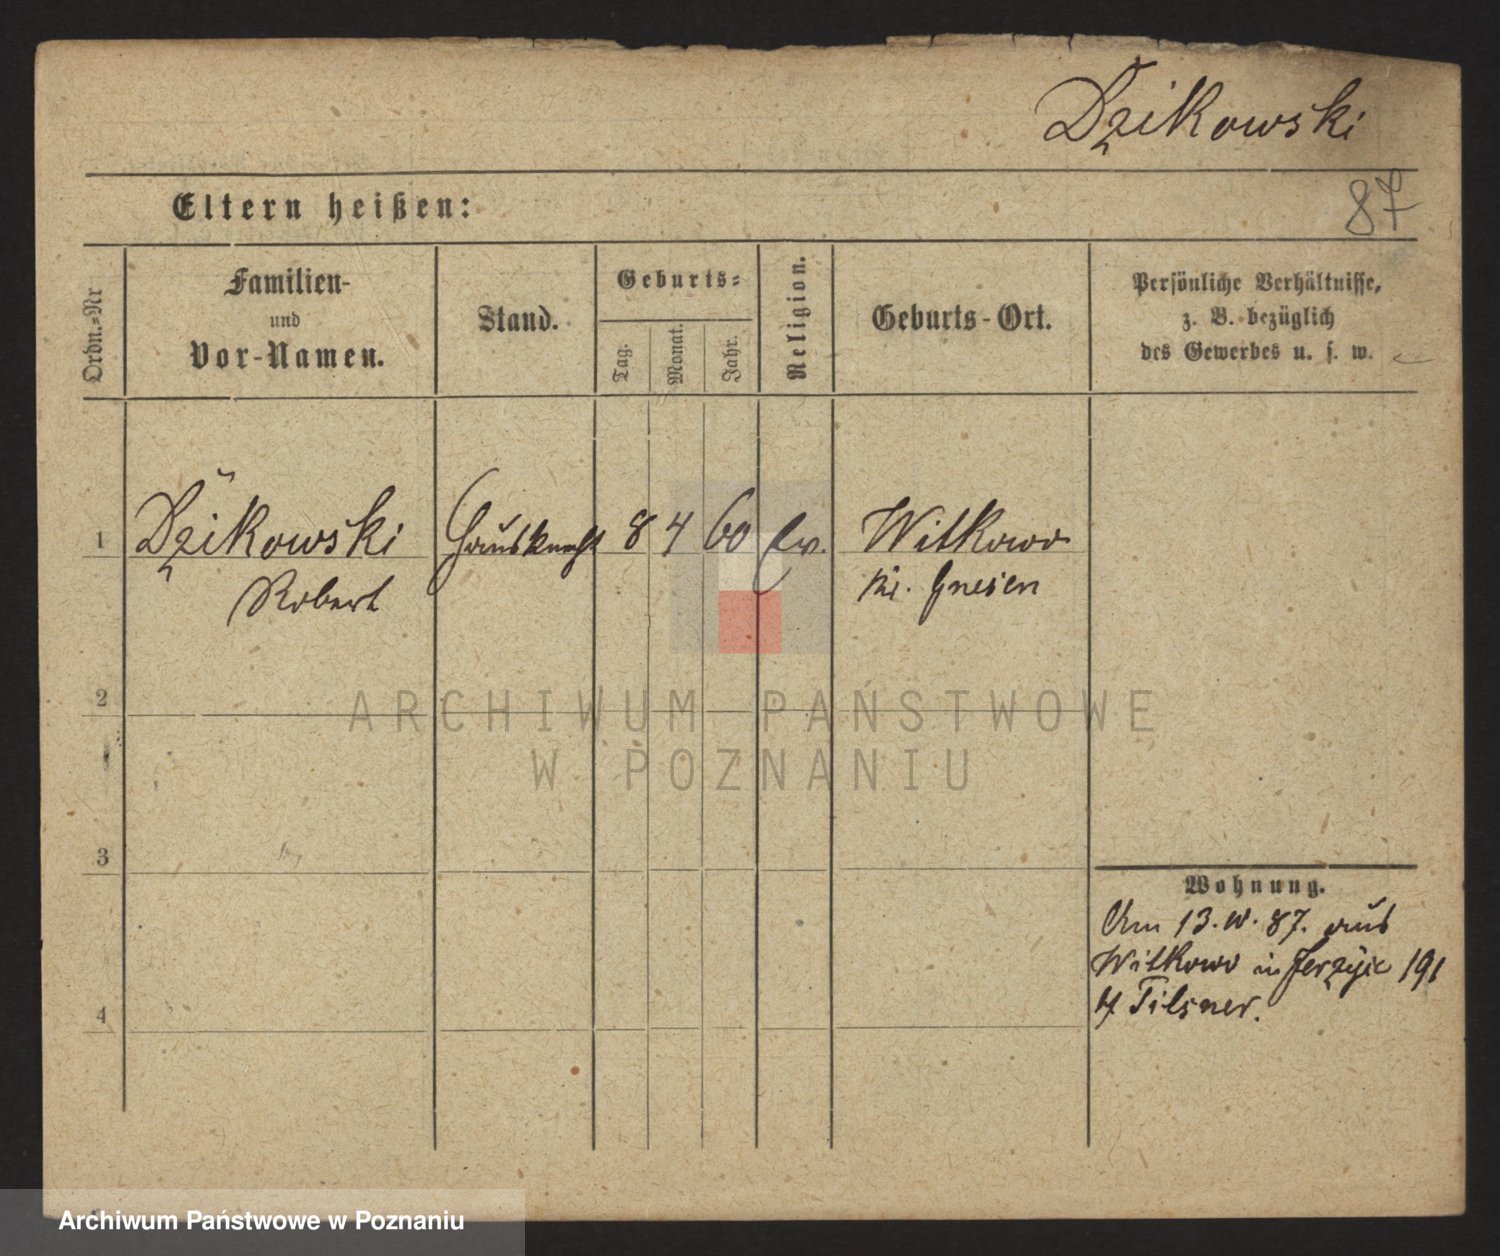 Dzikowski
87
Eltern heißen:
Ordn.-Nr
Familien-
und
Vor-Namen.
Stand.
Geburts-
Tag.
Monat.
Jahr.
Religion.
Geburts-Ort.
Persönliche Verhältnisse,
z. B. bezüglich
des Gewerbes u. s. w.
1 Dzikowski Hausknecht 8 4 60 Ev. Witkowo
Robert Kr. Gnesen
2
ARCHIWUM PAŃSTWOWE
W POZNANIU
3
Wohnung.
Am 13. 87. aus
Witkowo in Jerzyce 191
Tilsner.
4
Archiwum Państwowe w Poznaniu